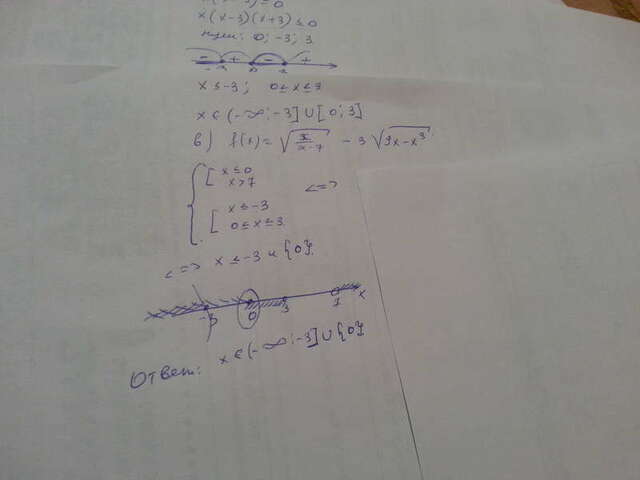 x(x-3)(x+3) ≤ 0
нули: 0; -3; 3
- + - +
x ≤ -3; 0 ≤ x ≤ 3
x ∈ (-∞; -3] ∪ [0; 3]
в) f(x) = √(x/(x-7)) - 3√(9x-x³)
{ [ x ≤ 0
x > 7 <=>
[ x ≤ -3
0 ≤ x ≤ 3
<=> x ≤ -3 и {0}.
-3 0 3 7 x
Ответ: x ∈ (-∞; -3] ∪ {0}